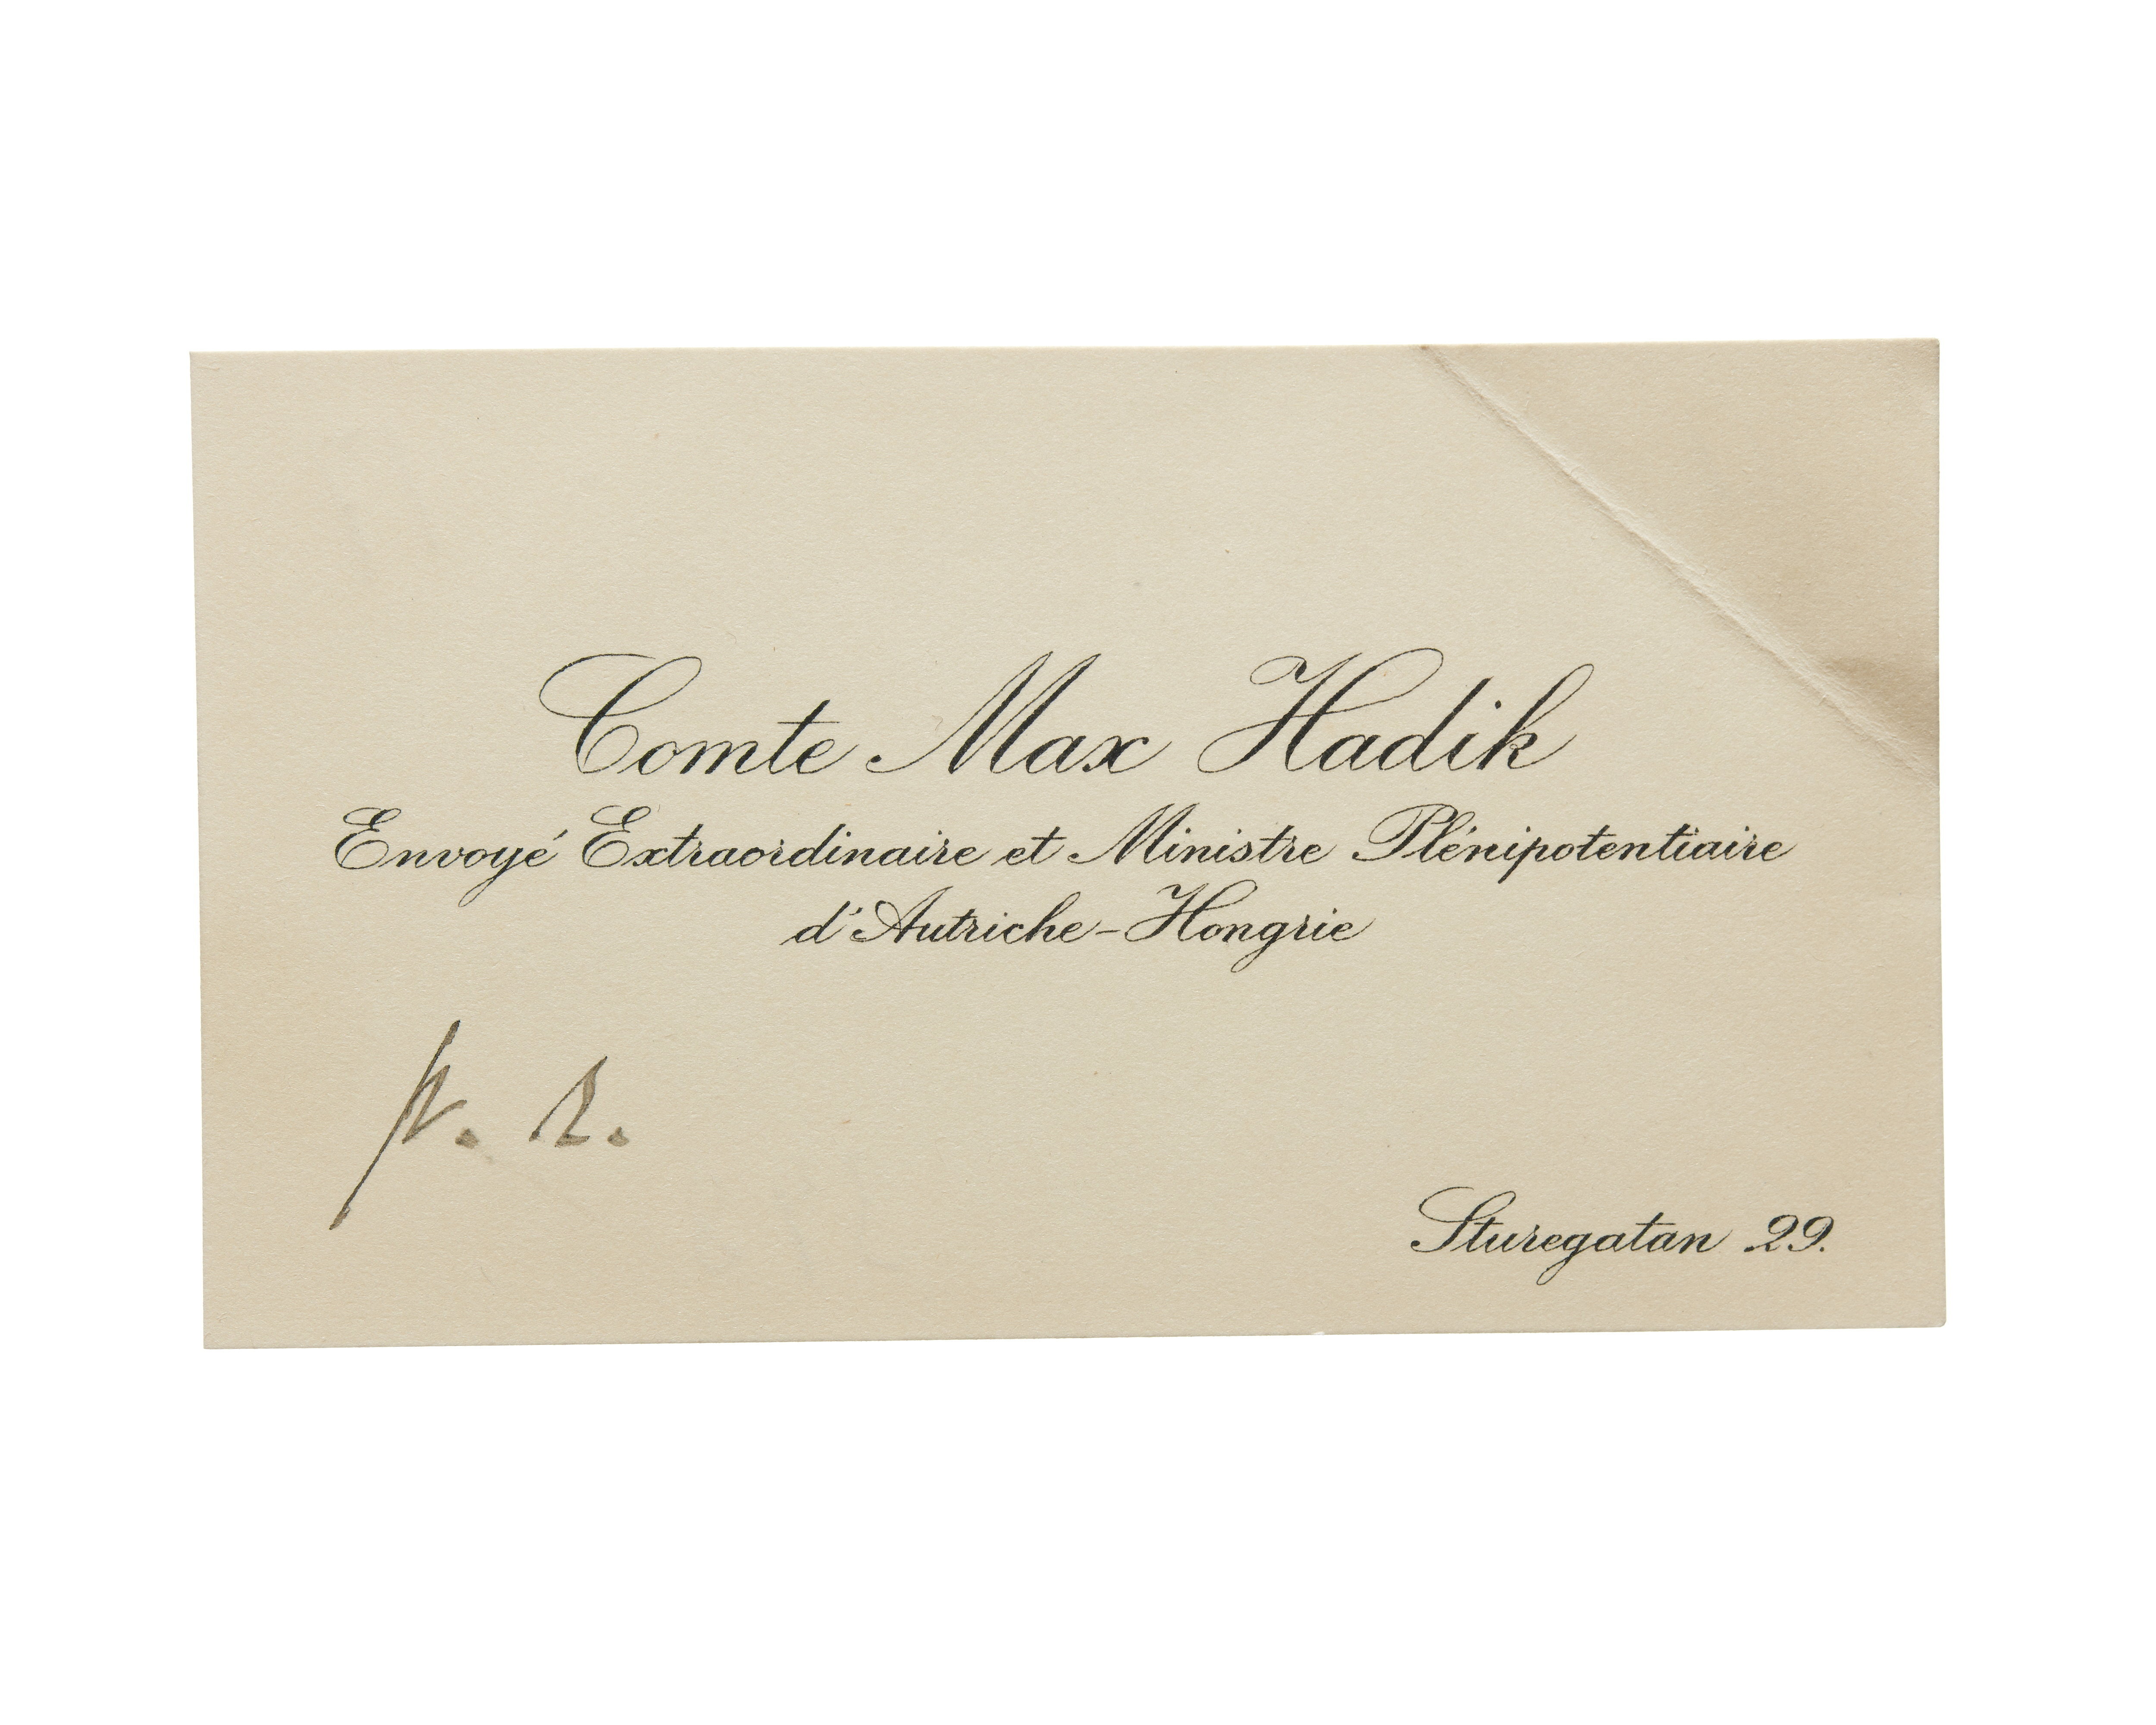 Comte Max Hadik
Envoyé Extraordinaire et Ministre Plénipotentiaire
d'Autriche-Hongrie
p. r.
Sturegatan 29.